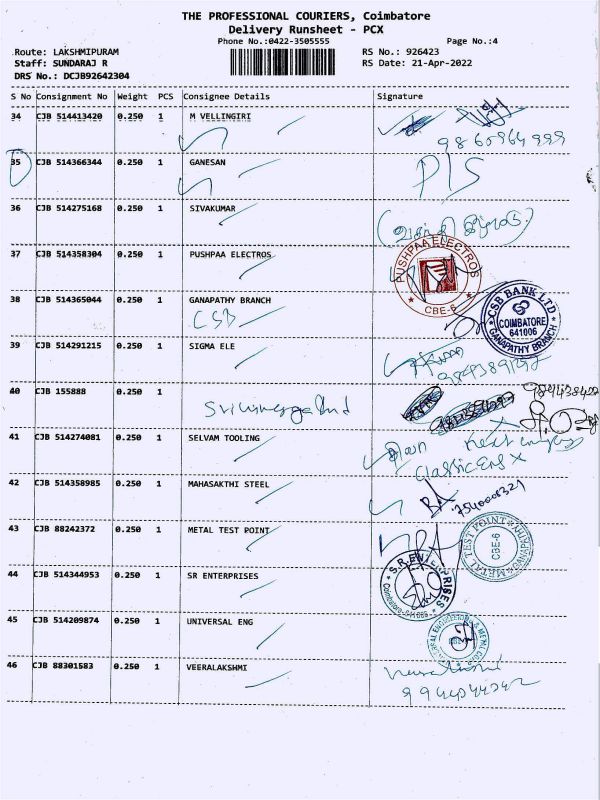 THE PROFESSIONAL COURIERS, Coimbatore
Delivery Runsheet - PCX
Phone No.:0422-3505555 Page No.:4
Route: LAKSHMIPURAM RS No.: 926423
Staff: SUNDARAJ R RS Date: 21-Apr-2022
DRS No.: DCJB92642304
S No Consignment No Weight PCS Consignee Details Signature
34 CJB 514413420 0.250 1 M VELLINGIRI
9860964999
35 CJB 514366344 0.250 1 GANESAN P/S
36 CJB 514275168 0.250 1 SIVAKUMAR
37 CJB 514358304 0.250 1 PUSHPAA ELECTROS
PUSHPAA ELECTROS
CBE-6
38 CJB 514365044 0.250 1 GANAPATHY BRANCH
CSB
CSB BANK LTD
COIMBATORE
641006
GANAPATHY BRANCH
39 CJB 514291215 0.250 1 SIGMA ELE
40 CJB 155888 0.250 1
41 CJB 514274081 0.250 1 SELVAM TOOLING
42 CJB 514358985 0.250 1 MAHASAKTHI STEEL
7540008321
43 CJB 88242372 0.250 1 METAL TEST POINT
METAL TEST POINT
CBE-6
44 CJB 514344953 0.250 1 SR ENTERPRISES
S.R. ENTERPRISES
45 CJB 514209874 0.250 1 UNIVERSAL ENG
46 CJB 88301583 0.250 1 VEERALAKSHMI